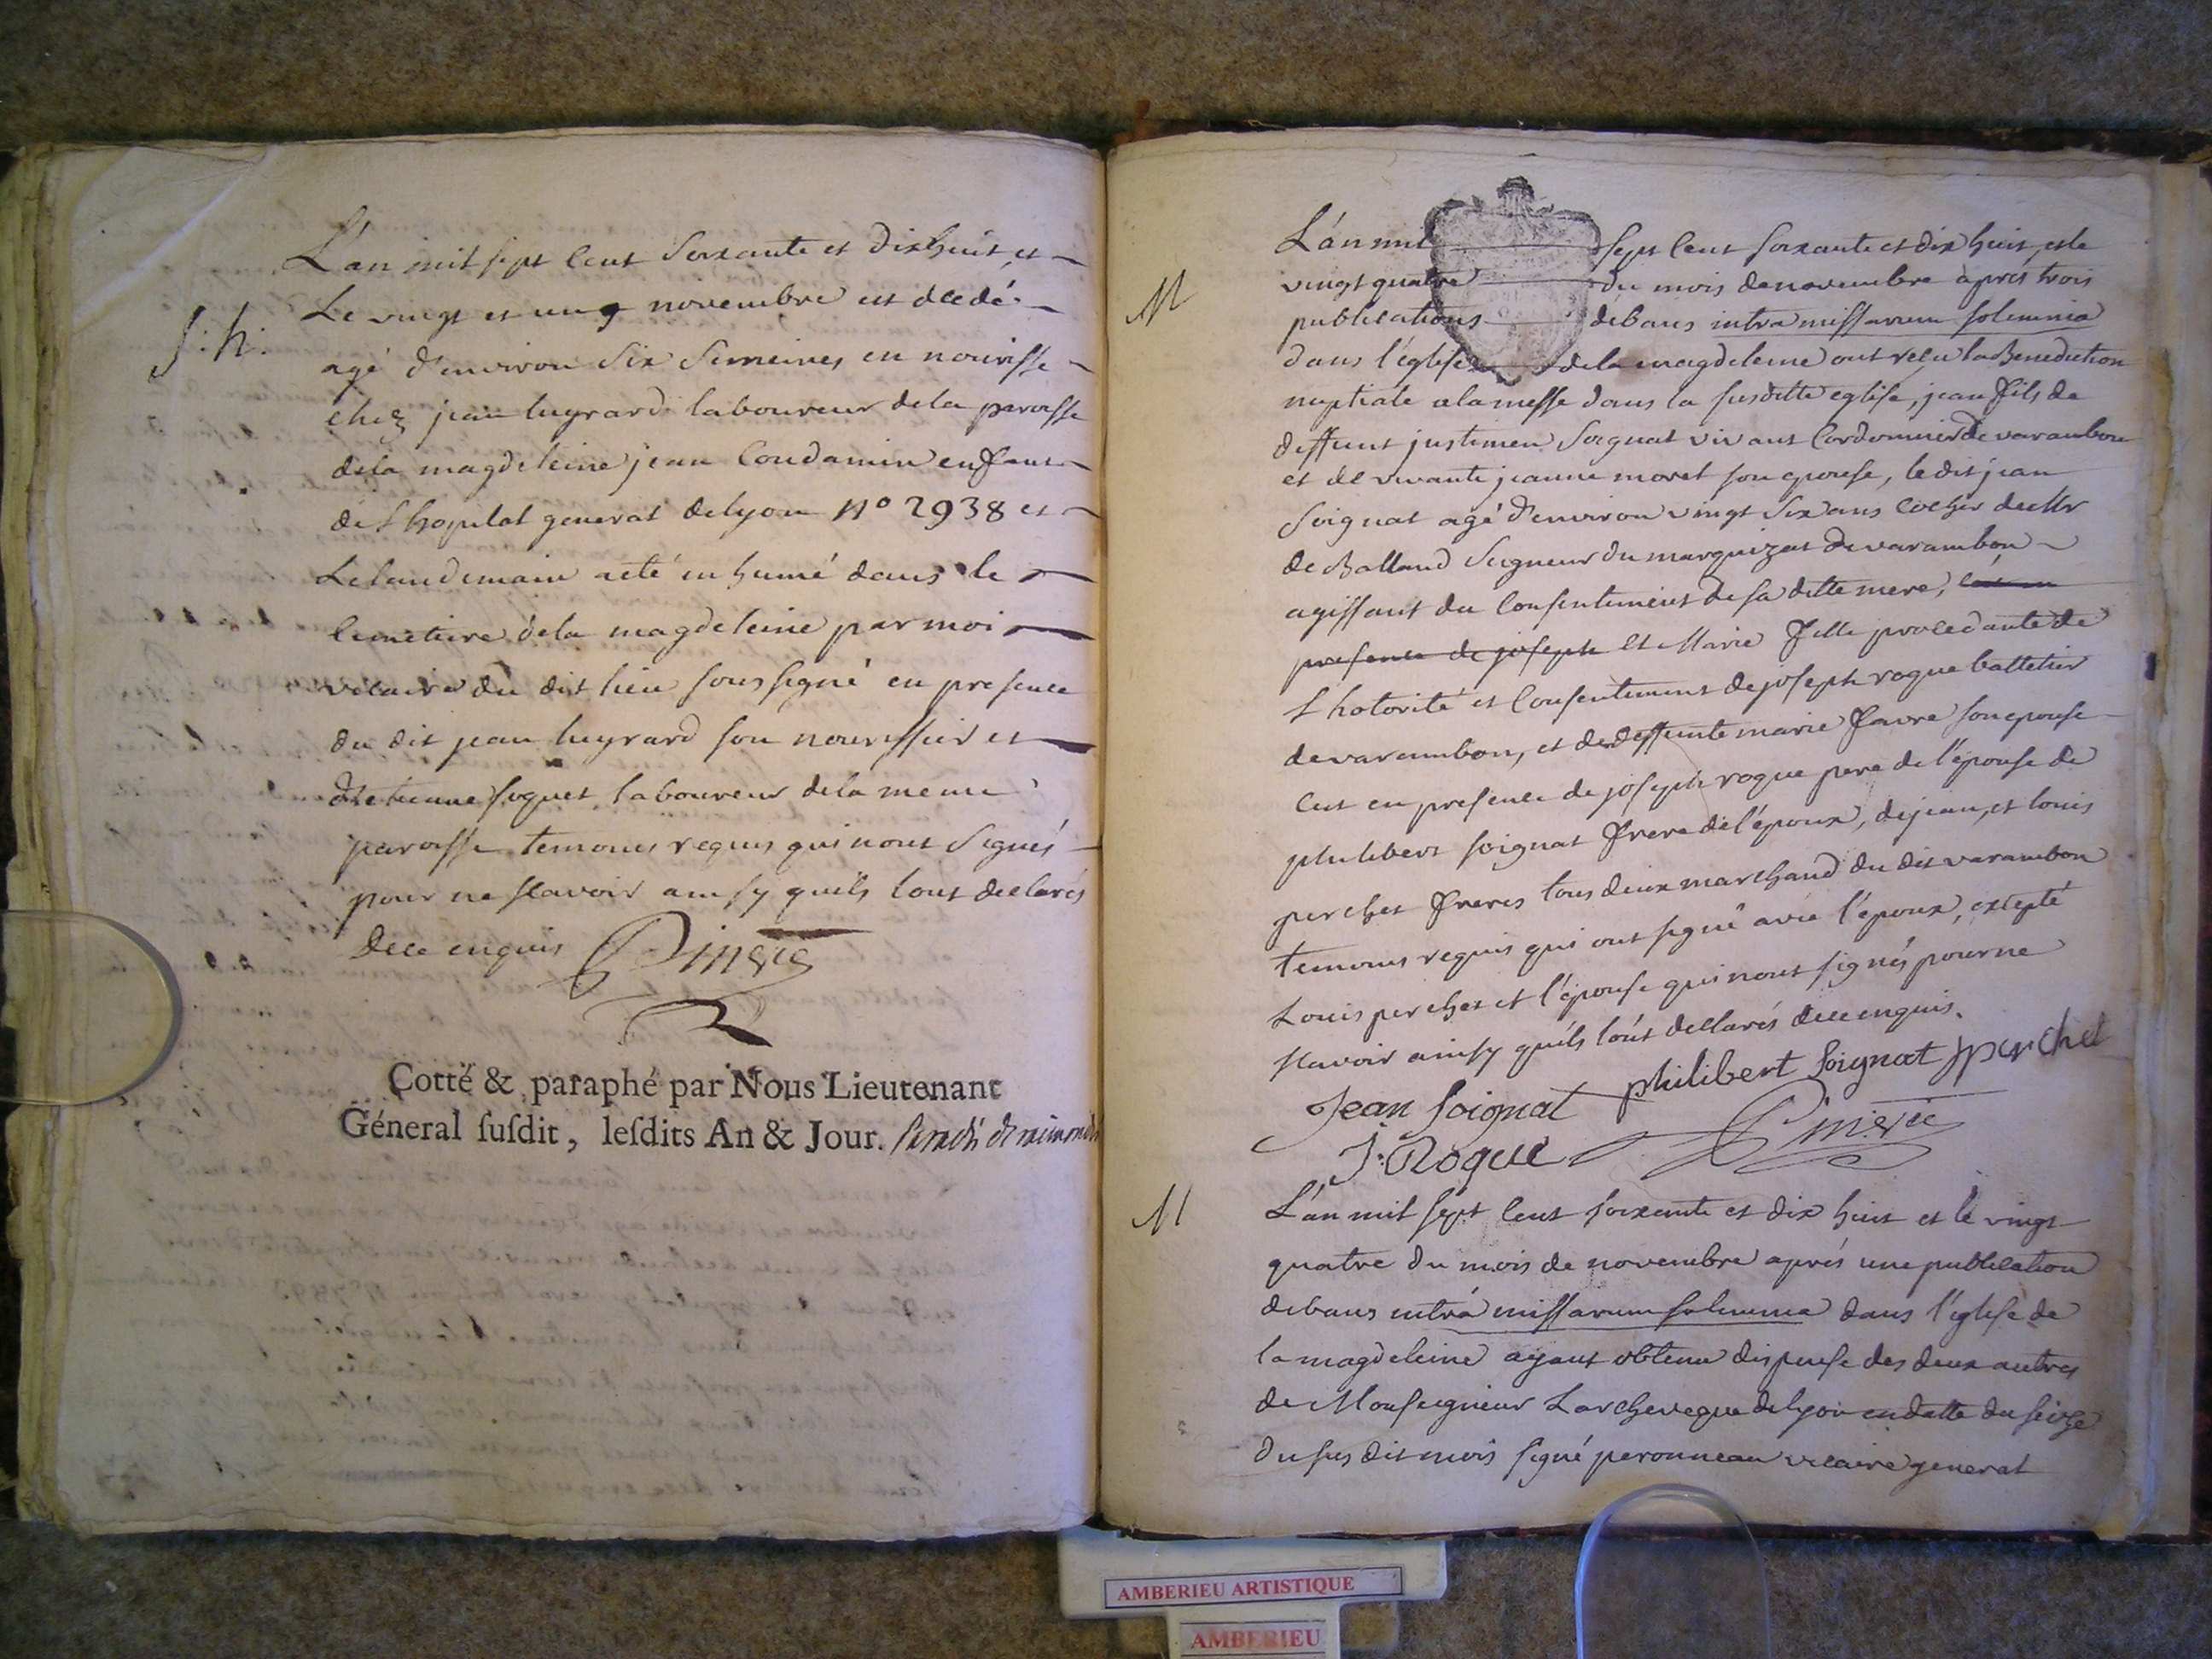 L'an mil sept cent soixante et dixhuit, et
Le vingt et un 9 novembre est decedé
S: h:
agé d'environ six semeines en nourisse
chez jean lugrard laboureur de la paroisse
de la magdeleine jean Condamin enfant
de l hopital general de lyon N° 2938 et
Le landemain a eté inhumé dans le
cemetiere de la magdeleine par moi
vicaire du dit lieu soussigné en presence
du dit jean lugrard son nourissier et
d'etienne foquet laboureur de la meme
paroisse temoins requis qui n'ont signés
pour ne scavoir ainsy quils l'ont declarés
de ce enquis
Cotté & paraphé par Nous Lieutenant
Géneral susdit, lesdits An & Jour.
L'an mil sept cent soixante et dix huit, et le
M
vingt quatre du mois de novembre après trois
publications de bans intra missarum solemnia
dans l'église de la magdeleine ont reçu la Benediction
nuptiale a la messe dans la susditte eglise, jean fils de
deffunt justinien Soignat vivant Cordonnier de varambon
et de vivante jeanne moret son epouse, le dit jean
Soignat agé d'environ vingt six ans cocher de Mr
de Balland Seigneur du marquizat de varambon
agissant du consentement de sa ditte mere,
presence de joseph et Marie fille procedante de
l hotorité et consentement de joseph rogue battelier
de varambon, et de deffunte marie favre son epouse
c'est en presence de joseph rogue pere de l'épouse de
philibert soignat frere de l'époux, de jean, et louis
perchet freres tous deux marchand du dit varambon
temoins requis qui ont signé avec l'époux, excepté
Louis perchet et l'épouse qui n'ont signés pour ne
scavoir ainsy qu'ils l'ont declarés de ce enquis.
Jean soignat philibert soignat J perchet
J: Rogue
M
L'an mil sept cent soixante et dix huit et le vingt
quatre du mois de novembre après une publication
de bans intrá missarum solemnia dans l'église de
la magdeleine ayant obtenu dispense des deux autres
de Monseigneur Larcheveque de lyon en datte du seize
du sus dit mois signé peronneau vicaire general
AMBERIEU ARTISTIQUE
AMBERIEU